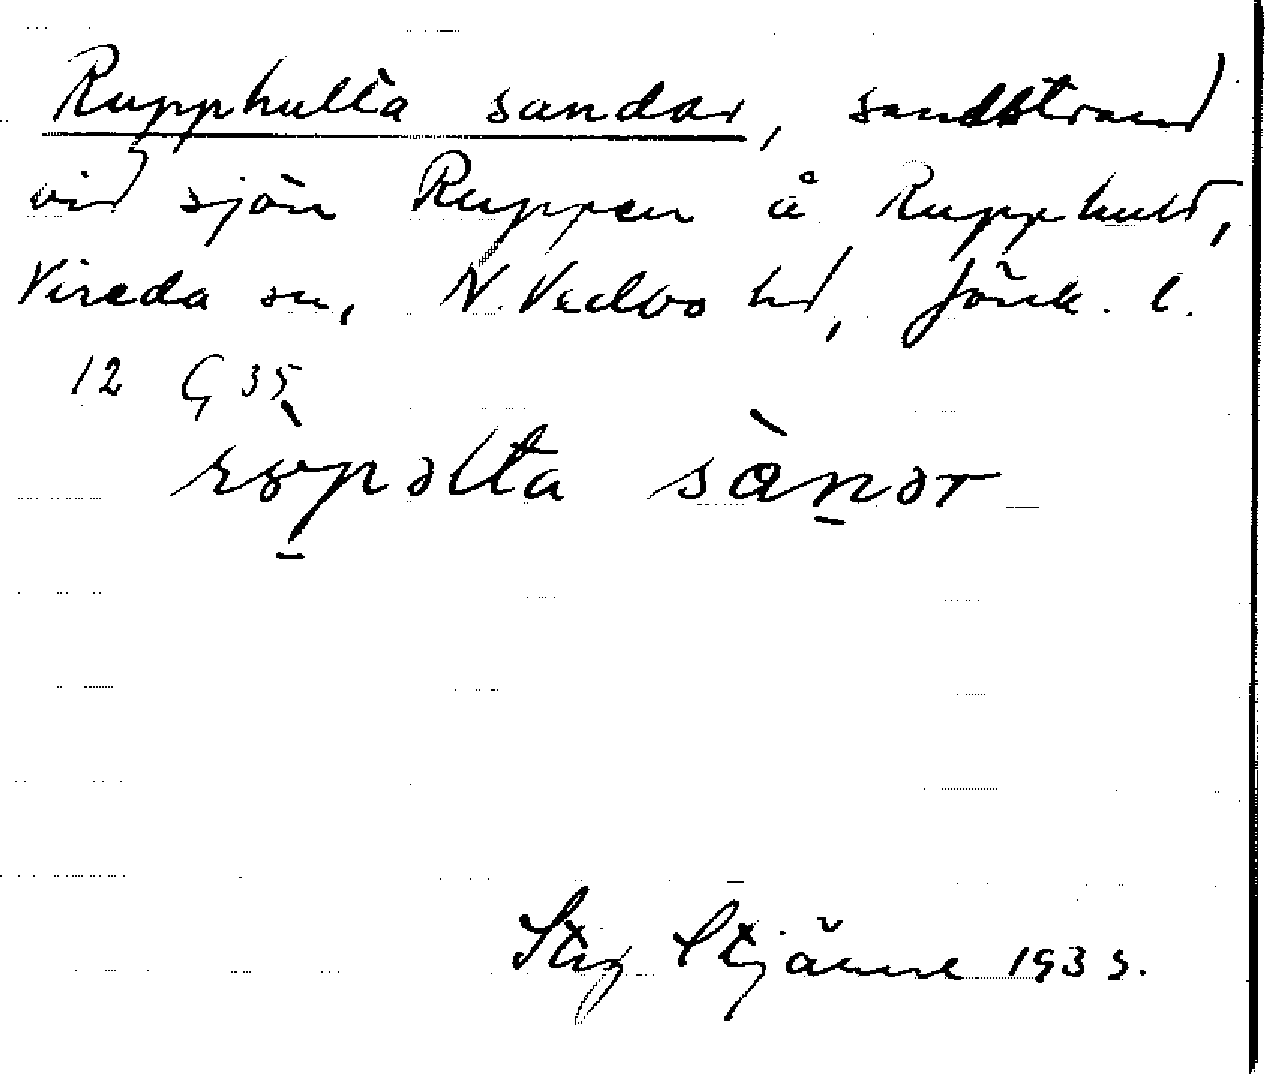 Rupphulta sandar, sandstrand
vid sjön Ruppen å Rupphult,
Vireda sn, N. Vedbo hd, Jönk. l.
12 G 35
ròpəlta sànər
Stig Stjärne 1935.